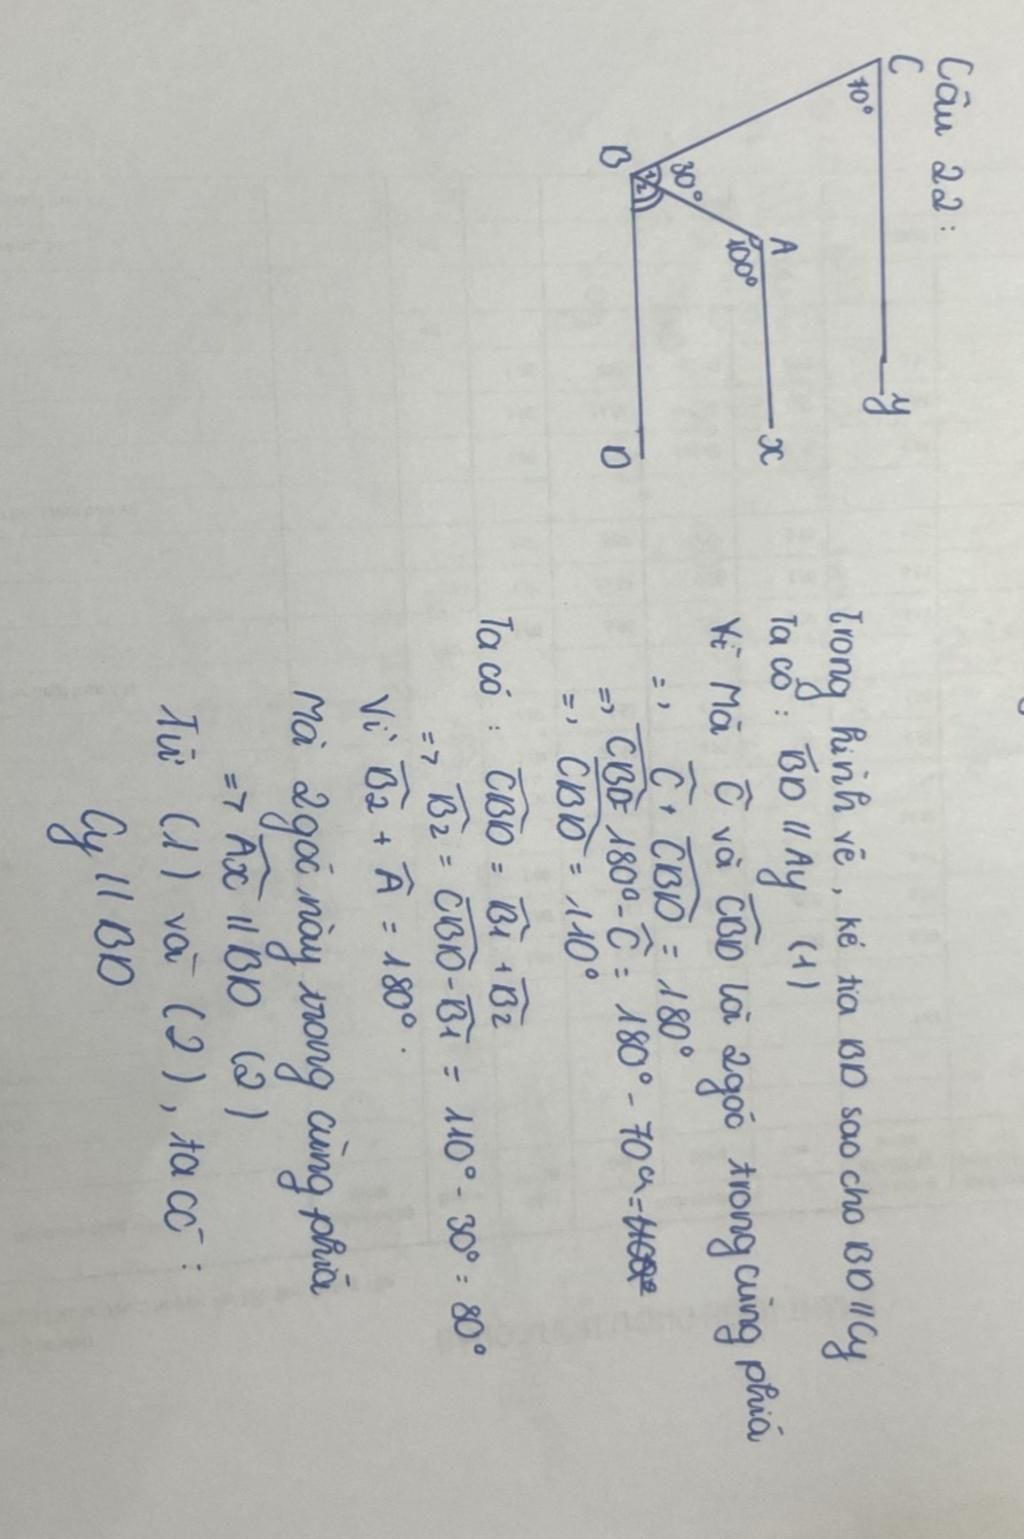 Câu 22:
C
70°
y
A
x
30°
100°
B
1
2
D
Trong hình vẽ, kẻ tia BD sao cho BD // Cy
Ta có: BD // Ay (1)
Vì Mà Ĉ và CBD là 2 góc trong cùng phía
=> Ĉ + CBD = 180°
=> CBD = 180° - Ĉ = 180° - 70° =
=> CBD = 110°
Ta có: CBD = B1 + B2
=> B2 = CBD - B1 = 110° - 30° = 80°
Vì B2 + Â = 180°.
Mà 2 góc này trong cùng phía
=> Ax // BD (2)
Từ (1) và (2), ta có:
Cy // BD